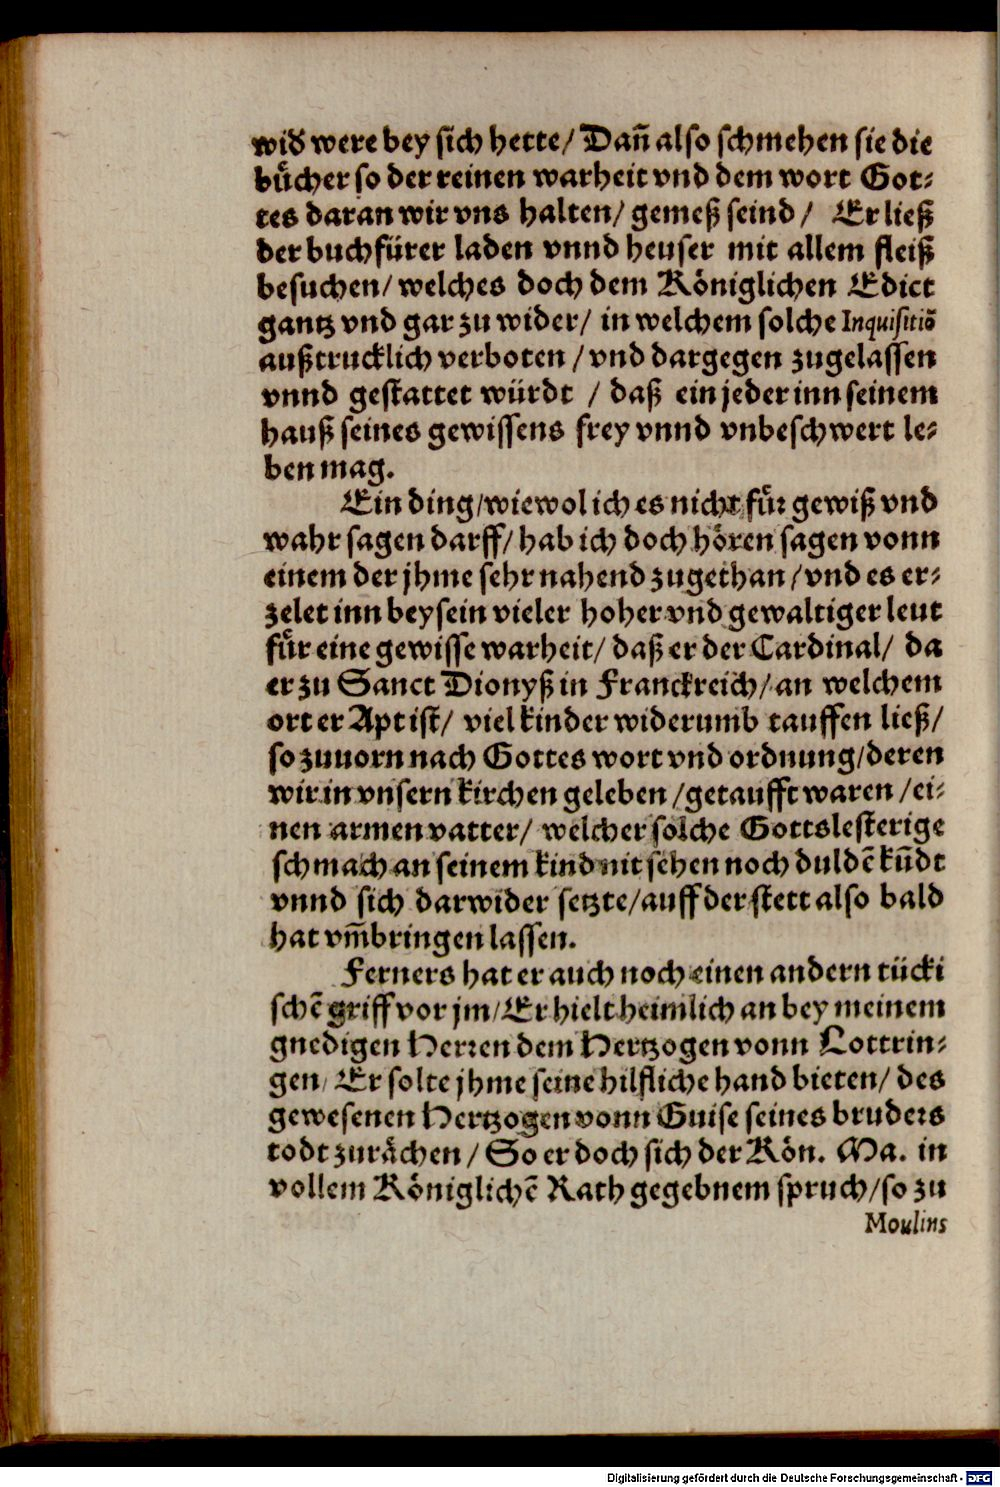 wid̕ were bey sich hette/ Dañ also schmehen sie die
bücher so der reinen warheit vnd dem wort Got⸗
tes daran wir vns halten/ gemeß seind / Er ließ
der buchfürer laden vnnd heuser mit allem fleiß
besuchen/ welches doch dem Königlichen Edict
gantz vnd gar zu wider/ in welchem solche Inquisitiō
außtrucklich verboten / vnd dargegen zugelassen
vnnd gestattet würdt / daß ein jeder inn seinem
hauß seines gewissens frey vnnd vnbeschwert le⸗
ben mag.
Ein ding/wiewol ich es nicht für gewiß vnd
wahr sagen darff/ hab ich doch hören sagen vonn
einem der jhme sehr nahend zugethan/vnd es er⸗
zelet inn beysein vieler hoher vnd gewaltiger leut
für eine gewisse warheit/ daß er der Cardinal/ da
er zu Sanct Dionyß in Franckreich/ an welchem
ort er Apt ist/ viel kinder widerumb tauffen ließ/
so zuuorn nach Gottes wort vnd ordnung/deren
wir in vnsern kirchen geleben /getaufft waren /ei⸗
nen armen vatter/ welcher solche Gottslesterige
schmach an seinem kind nit sehen noch duldē kūdt
vnnd sich darwider setzte/auff der stett also bald
hat vm̄bringen lassen.
Ferners hat er auch noch einen andern tücki
schē griff vor jm/Er hielt heimlich an bey meinem
gnedigen Herren dem Hertzogen vonn Lottrin⸗
gen/ Er solte jhme seine hilfliche hand bieten/ des
gewesenen Hertzogen vonn Guise seines bruders
todt zurächen / So er doch sich der Kön. Ma. in
vollem Königlichē Rath gegebnem spruch/so zu
Moulins
Digitalisierung gefördert durch die Deutsche Forschungsgemeinschaft - DFG